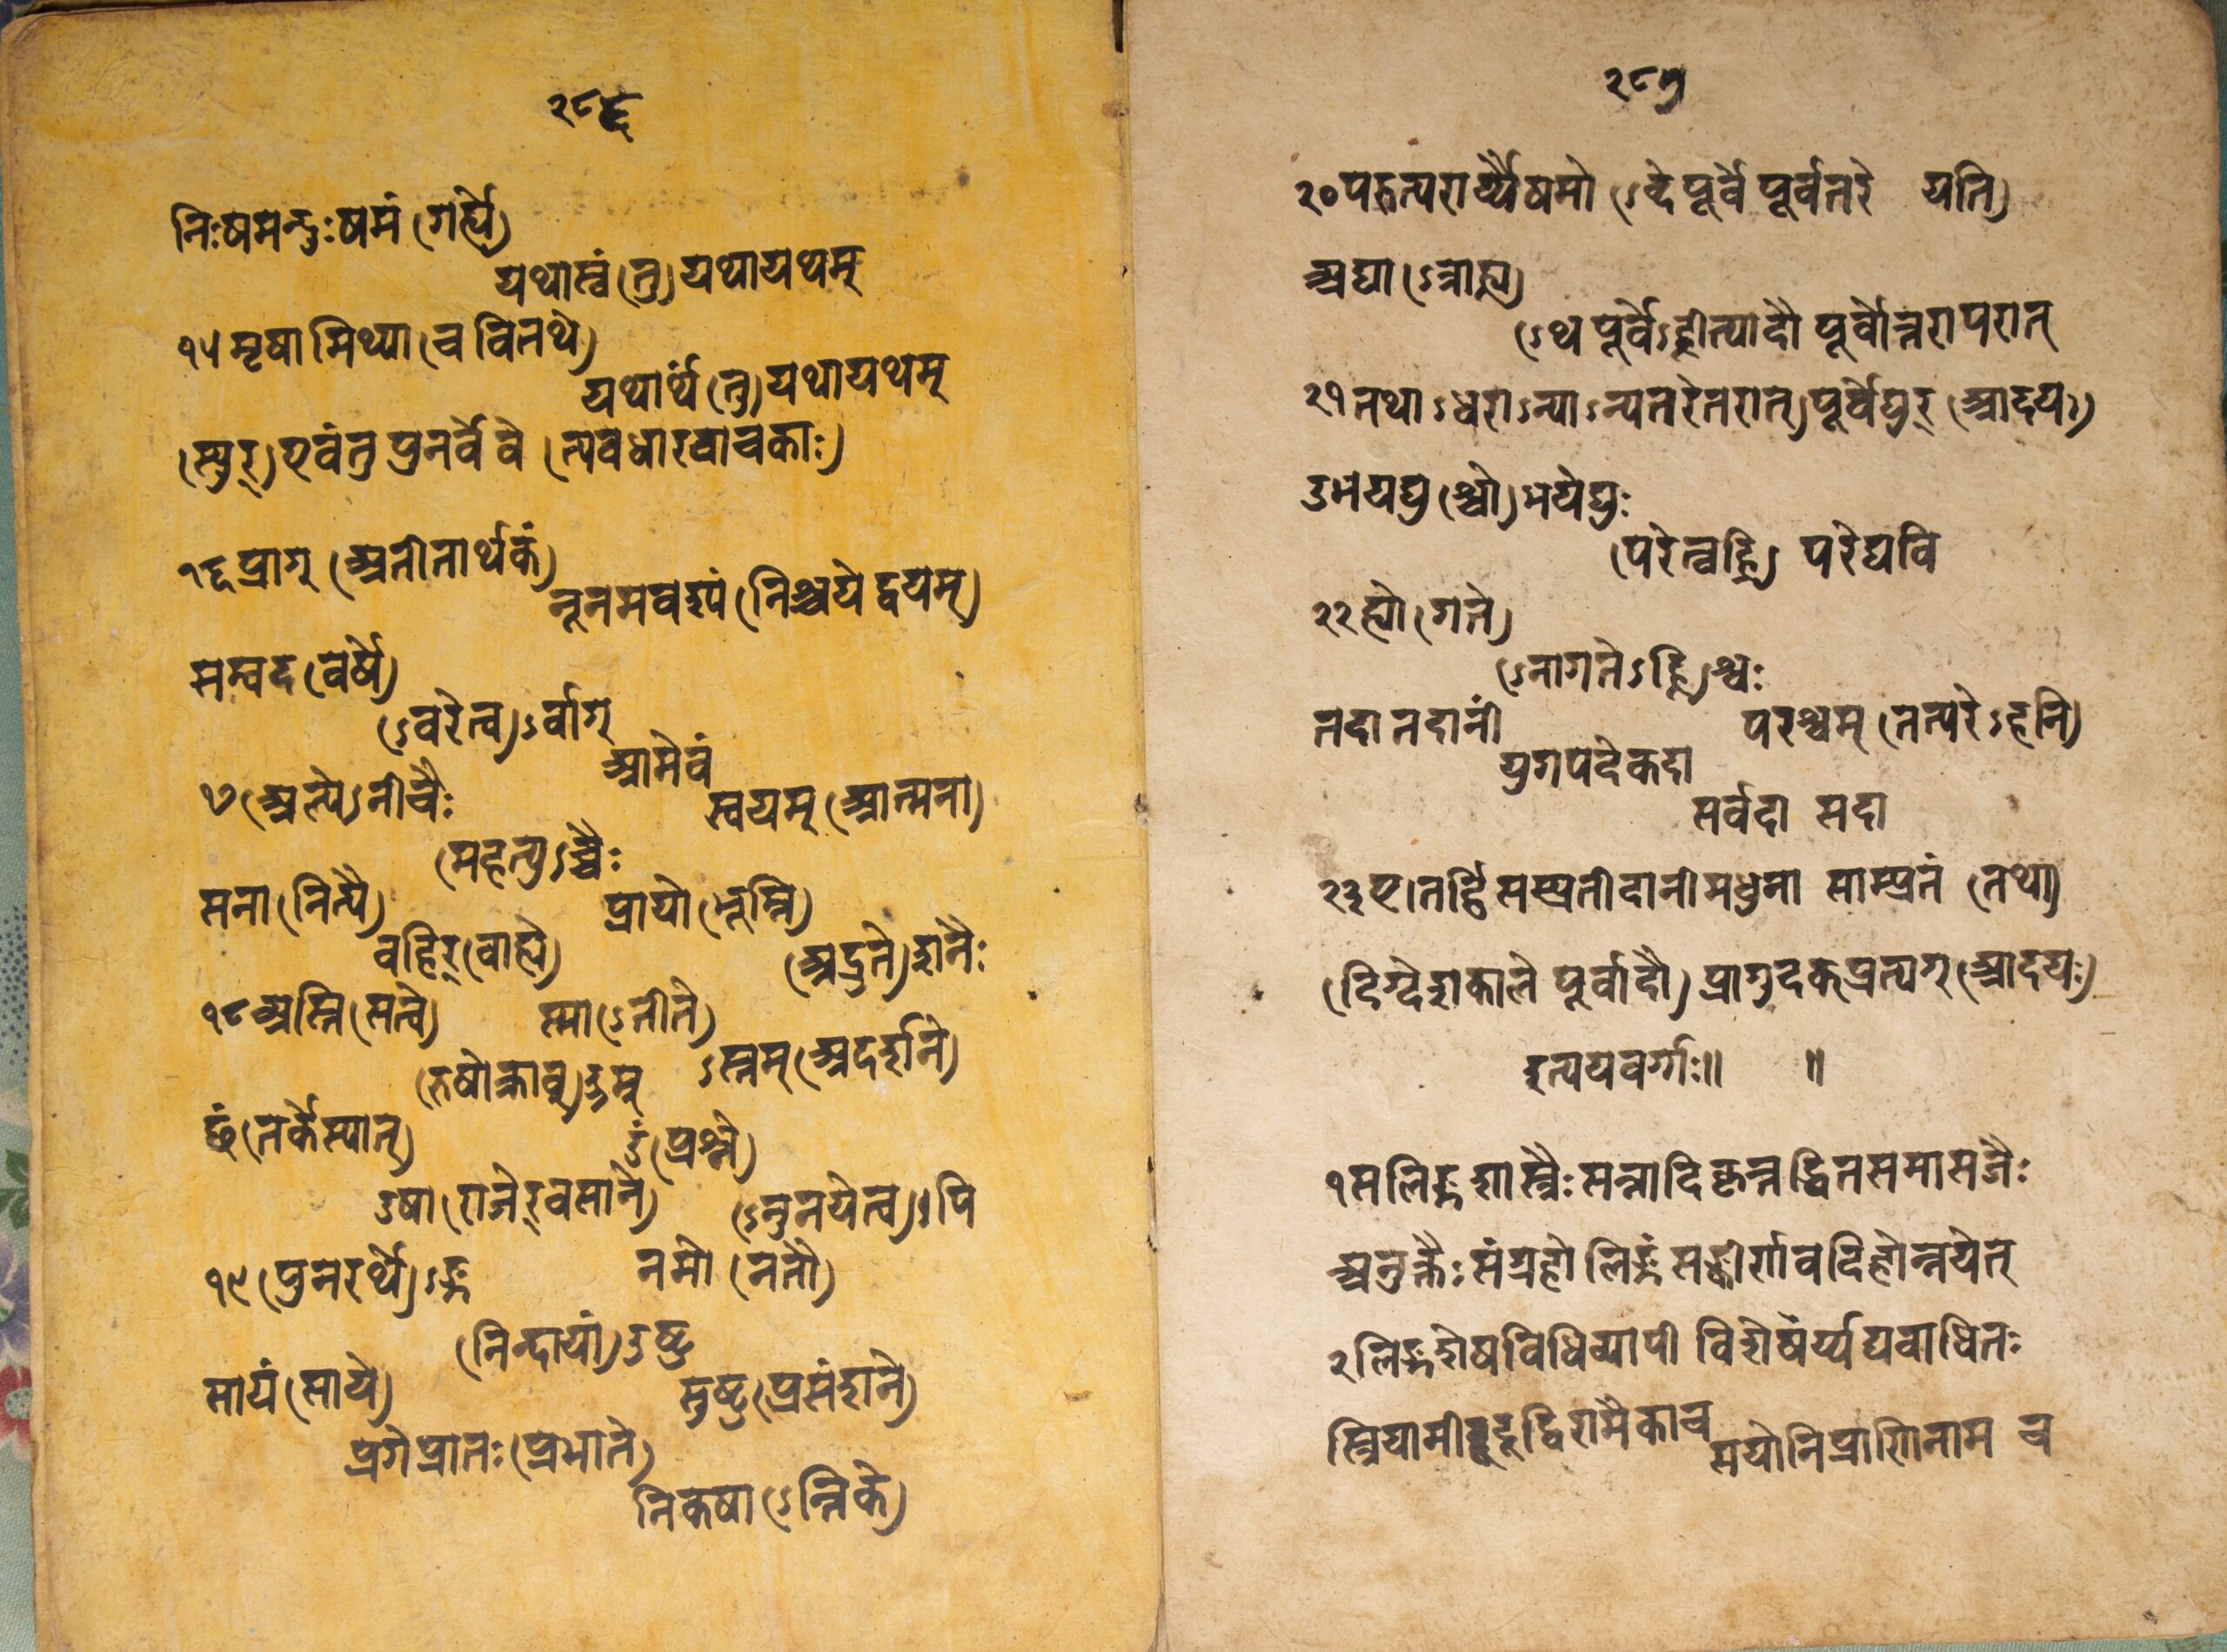 २८६
निःषमन्दुःषमं (गर्ह्ये)
यथास्वं (तु) यथायथम्
१५ मृषा मिथ्या (च वितथे)
यथार्थं (तु) यथायथम्
(स्युर्) एवं तु पुनर्वै वे (त्यवधारवाचकाः)
१६ प्राग् (अतीतार्थकं)
नूनमवश्यं (निश्चये द्वयम्)
सम्वद (वर्षे)
(ऽवरे त्व) ऽर्वाग्
आमेवं
स्वयम् (आत्मना)
१७ (अल्पे) नीचैः
(महत्यु) ऽच्चैः
सना (नित्ये)
प्रायो (भूम्नि)
वहिर् (वाह्ये)
(अद्रुते) शनैः
१८ अस्ति (सत्वे)
स्मा (ऽतीते)
ऽस्तम् (अदर्शने)
(रुषोक्तावु) ऽुम्
(तर्के स्यात्)
उं (प्रश्ने)
उषा (रात्रेर्वसाने)
(ऽनुनये त्व) ऽयि
१९ (पुनरर्थे) ऽङ्ग
नमो (नतौ)
(निन्दायां) दुष्ठु
सायं (साये)
सुष्ठु (प्रसंशने)
प्रगे प्रातः (प्रभाते)
निकषा (ऽन्तिके)
२८७
२० परुत्परार्य्यैषमो (ऽव्दे पूर्वे पूर्वतरे यति)
अद्या (ऽत्राह्न्य)
(ऽथ पूर्वेऽह्नीत्यादौ पूर्वोत्तरापरात्
२१ तथाऽधराऽन्याऽन्यतरेतरात्) पूर्वेद्युर् (आदयः)
उभयद्यु (श्चो) भयेद्युः
(परे त्वह्नि) परेद्यवि
२२ ह्यो (गते)
(ऽनागतेऽह्नि) श्वः
तदा तदानीं
परश्वम् (तत्परेऽहनि)
युगपदेकदा
सर्वदा सदा
२३ एतर्हि सम्प्रतीदानीमधुना साम्प्रतं (तथा)
(दिग्देशकाले पूर्वादौ) प्रागुदक्प्रत्यग् (आदयः)
इत्यव्ययवर्गः॥ ॥
१ सलिङ्गशास्त्रैः सन्नादिकृत्तद्धितसमासजैः
अनुक्तैः संग्रहो लिङ्गं सङ्कीर्णवदिहोन्नयेत्
२ लिङ्गशेषविधिर्व्यापी विशेषैर्य्यद्यवाधितः
स्त्रियामीदूद्विरामैकाच
सयोनिप्राणिनाम च